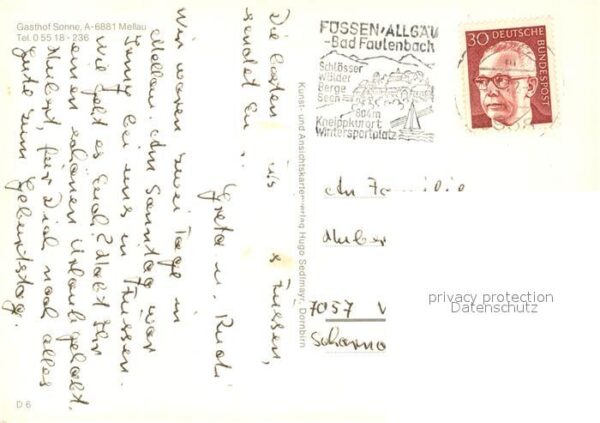 Gasthof Sonne, A-6881 Mellau
Tel. 0 55 18 - 236
Die besten
aus Füssen,
sendet Eu
Greta u. Rudi
Wir waren zwei Tage in
Mellau. Am Sonntag war
bei uns in Füssen.
Wie geht es Euch? Habt Ihr
einen schönen Urlaub gehabt.
Hubert, für Dich noch alles
Gute zum Geburtstag.
D 6
Kunst- und Ansichtskartenverlag Hugo Sedlmayr, Dornbirn
FÜSSEN/ALLGÄU
-Bad Faulenbach
Schlösser
Wälder
Berge
Seen
804m
Kneippkurort
Wintersportplatz
30
DEUTSCHE
BUNDESPOST
An Familie
Huber
7057 W
privacy protection
Datenschutz